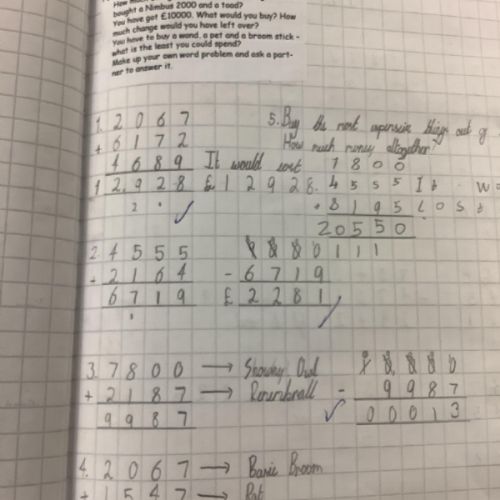 bought a Nimbus 2000 and a toad?
You have got £10000. What would you buy? How
much change would you have left over?
You have to buy a wand, a pet and a broom stick -
what is the least you could spend?
Make up your own word problem and ask a part-
ner to answer it.
1. 2067
+ 6172
4689 It would cost
12,928 £12928.
5. Buy the most expensive things out of
How much money altogether?
7800
4555 It
+ 8195 cost
20550
2. 4555
+ 2164
6719
- 6719
£ 2281
3. 7800 → Showny Owl
+ 2187
9987
- 9987
00013
4. 2067 → Basic Broom
+ 1547 → Rat